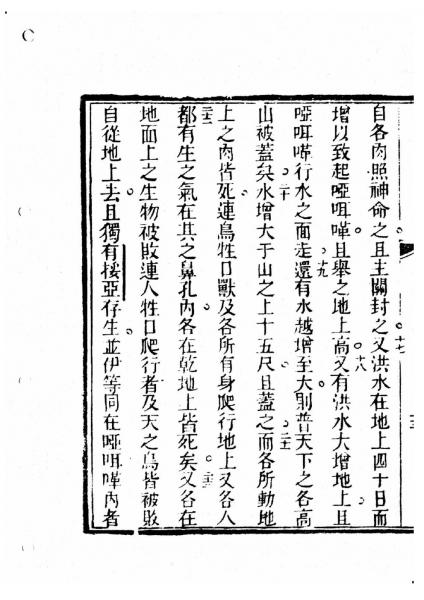 自各肉照神命之且主關封之十七又洪水在地上四十日而
增以致起啞咡嘩且舉之地上高十八又有洪水大增地上且
啞咡嘩行水之面走十九還有水越增至大則普天下之各高
山被蓋矣二十水增大于山之上十五尺且蓋之二十一而各所動地
上之肉皆死連鳥牲口獸及各所有身爬行地上又各人
二十二都有生之氣在其之鼻孔內各在乾地上皆死矣二十三又各在
地面上之生物被敗連人牲口爬行者及天之鳥皆被敗
自從地上去且獨有挼亞存生並伊等同在啞咡嘩內者